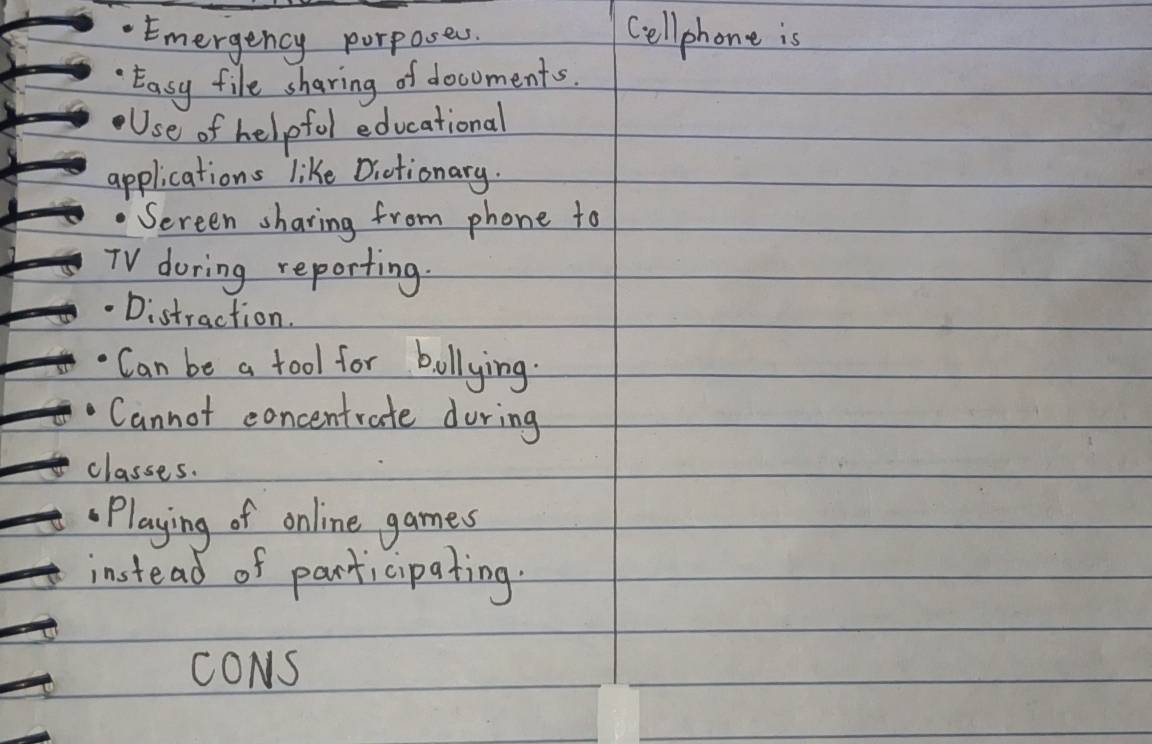 • Emergency purposes.
• Easy file sharing of documents.
• Use of helpful educational
applications like Dictionary.
• Screen sharing from phone to
TV during reporting.
• Distraction.
• Can be a tool for bullying.
• Cannot concentrate during
classes.
• Playing of online games
instead of participating.
CONS
Cellphone is